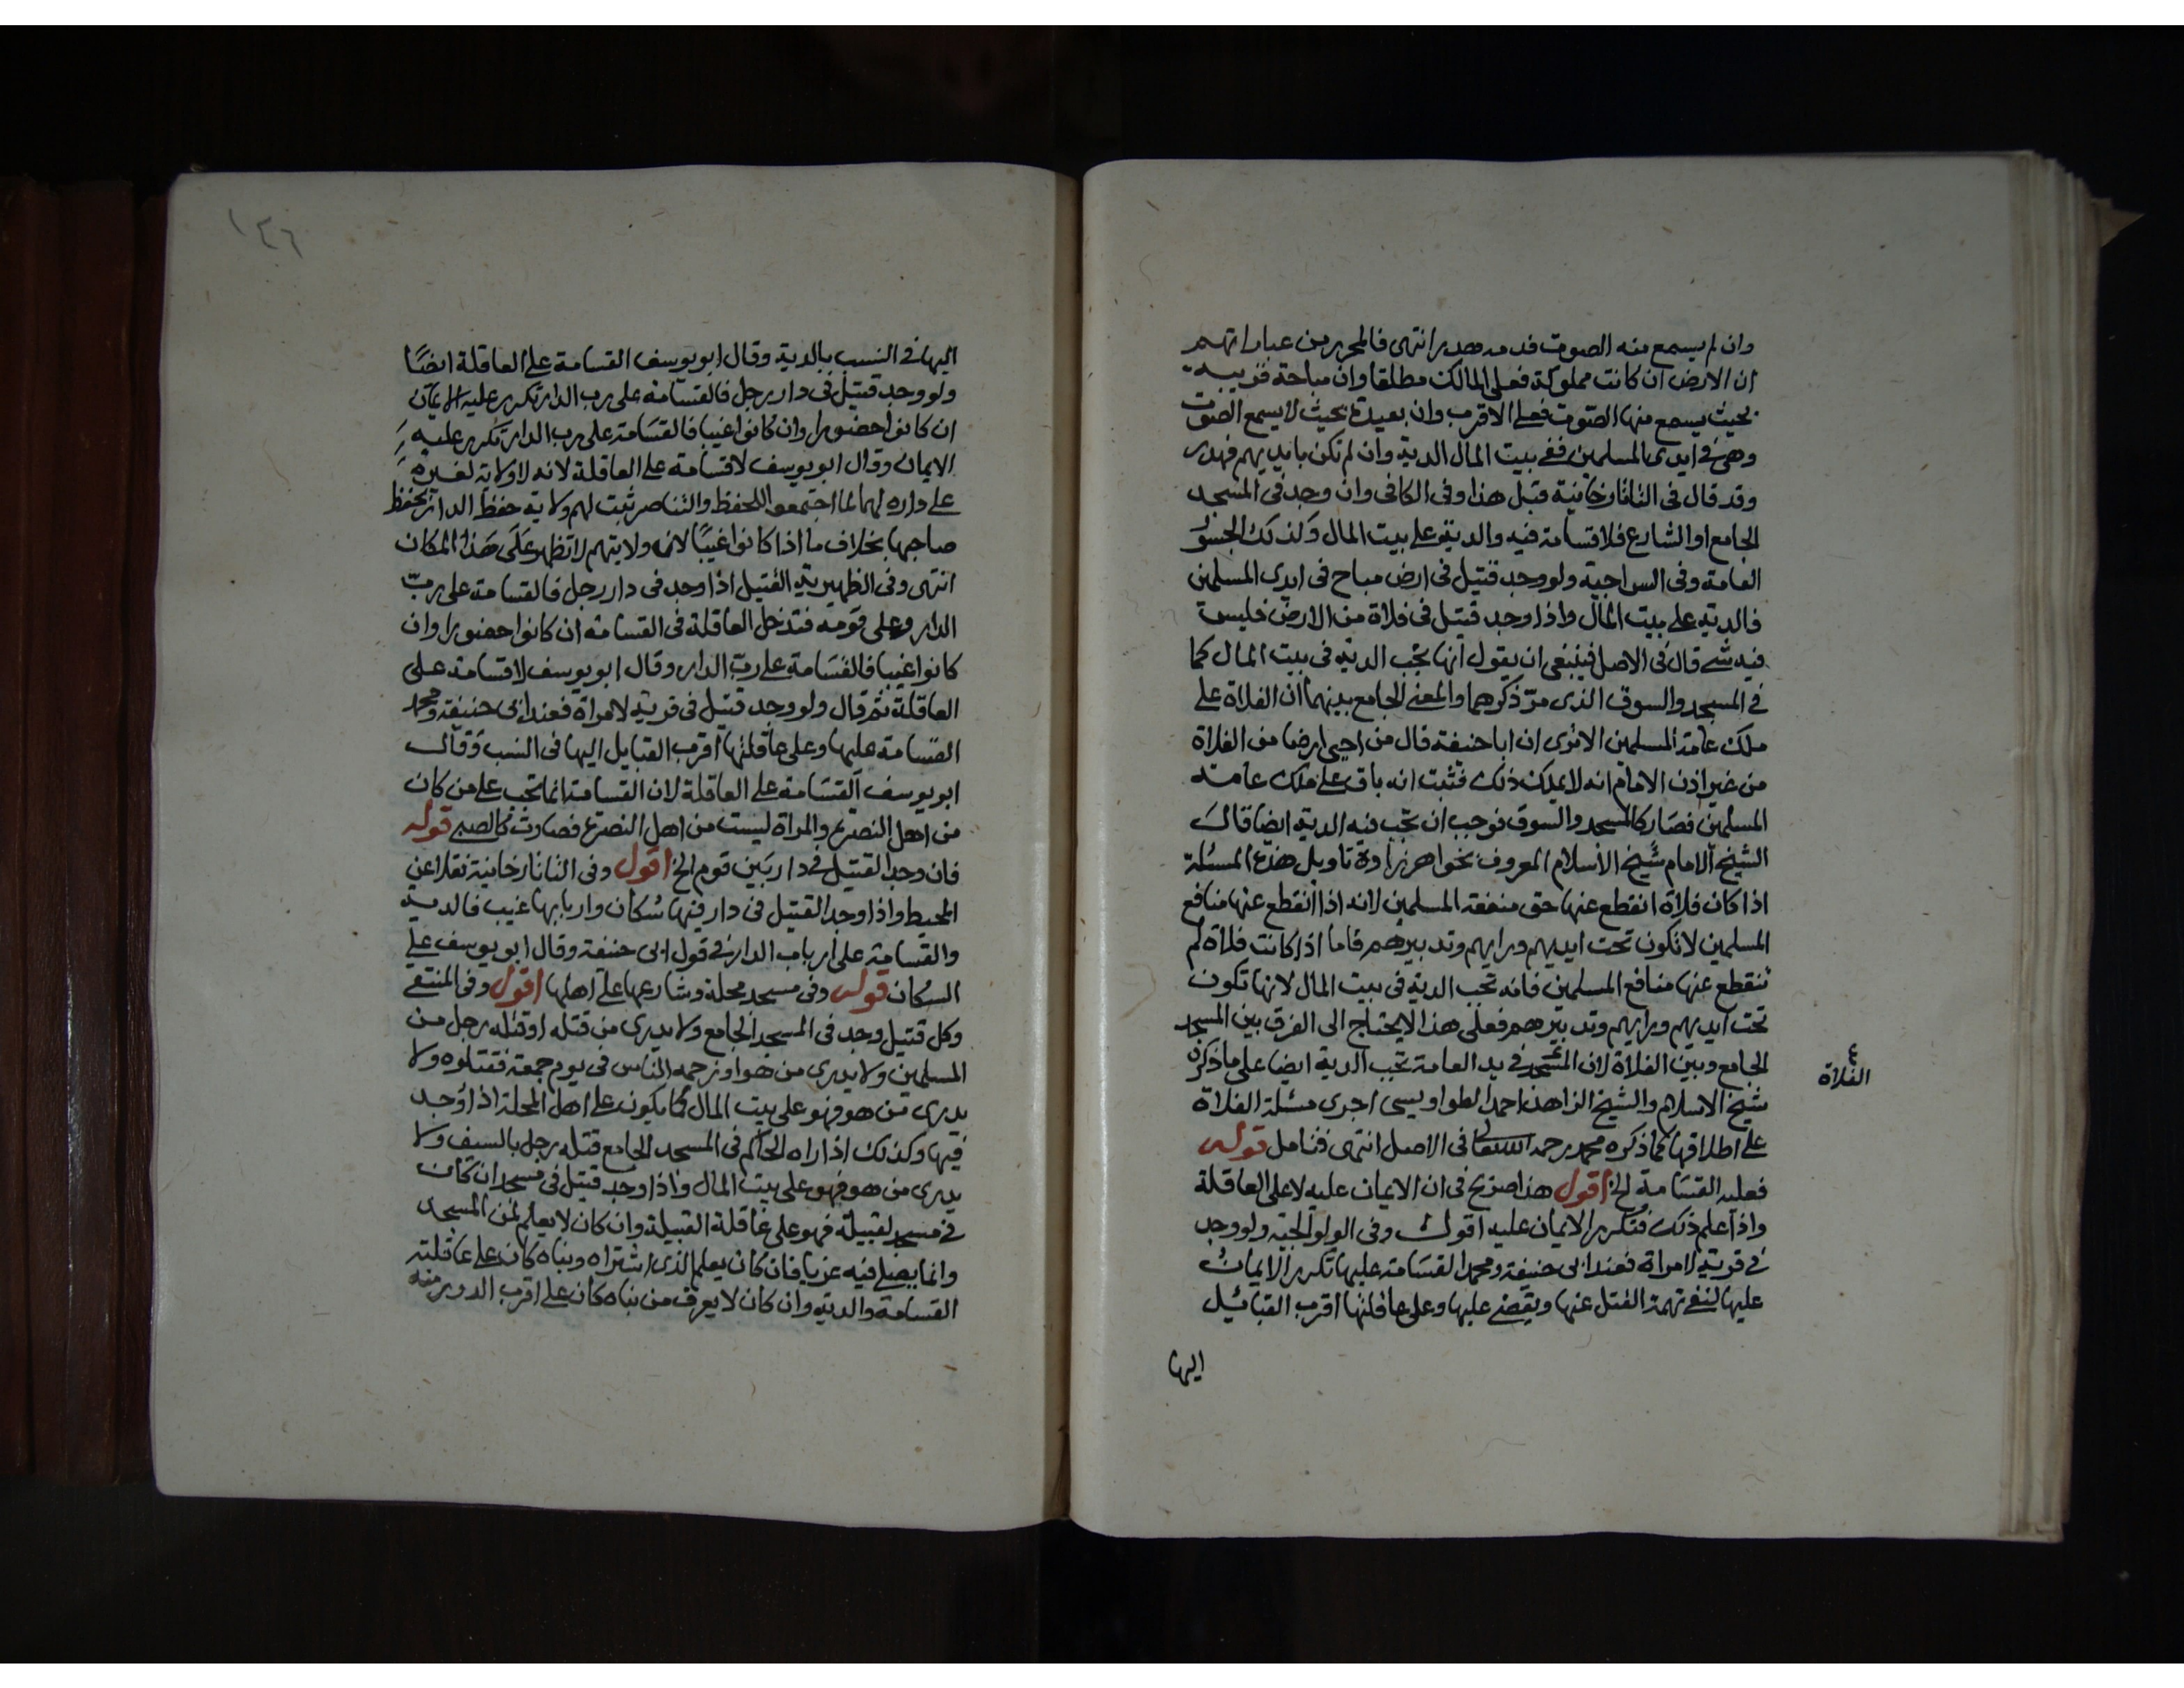 وان لم يسمع منه الصوت فدمه هدر انتهى فالمحرر من عباراتهم
ان الارض ان كانت مملوكة فعلى المالك مطلقا وان مباحة قريبة
بحيث يسمع منها الصوت فعلى الاقرب وان بعيدة بحيث لا يسمع الصوت
وهى فى ايدى المسلمين ففى بيت المال الدية وان لم تكن بايديهم فهدر
وقد قال فى التاتارخانية قبل هذا وفى الكافى وان وجد فى المسجد
الجامع او الشارع فلا قسامة فيه والدية على بيت المال وكذلك الجسور
العامة وفى السراجية ولو وجد قتيل فى ارض مباح فى ايدى المسلمين
فالدية على بيت المال واذا وجد قتيل فى فلاة من الارض فليس
فيه شئ قال فى الاصل فينبغى ان يقول انها تجب الدية فى بيت المال كما
فى المسجد والسوق الذى مر ذكرهما والمعنى الجامع بينهما ان الفلاة على
ملك عامة المسلمين الا ترى ان ابا حنيفة قال من احيى ارضا من الفلاة
من غير اذن الامام انه لا يملك ذلك فثبت انه باق على ملك عامة
المسلمين فصار كالمسجد والسوق فوجب ان تجب فيه الدية ايضا قال
الشيخ الامام شيخ الاسلام المعروف بخواهر زاده تاويل هذه المسئلة
اذا كان فلاة انقطع عنها حق منفعة المسلمين لانه اذا انقطع عنها منافع
المسلمين لا تكون تحت ايديهم ورايهم وتدبيرهم فاما اذا كانت فلاة لم
تنقطع عنها منافع المسلمين فانه تجب الدية فى بيت المال لانها تكون
تحت ايديهم ورايهم وتدبيرهم فعلى هذا لا يحتاج الى الفرق بين المسجد
الجامع وبين الفلاة لان المسجد فى يد العامة تجب الدية ايضا على ما ذكره
الفلاة
شيخ الاسلام والشيخ الزاهد احمد الطواويسى اجرى مسئلة الفلاة
على اطلاقها كما ذكره محمد رحمه الله تعالى فى الاصل انتهى فتامل قوله
فعليه القسامة الخ اقول هذا صريح فى ان الايمان عليه لا على العاقلة
واذا علم ذلك فتكرر الايمان عليه اقول وفى الولوالجية ولو وجد
فى قرية لامراة فعند ابى حنيفة ومحمد القسامة عليها تكرر الايمان
عليها لنفى تهمة القتل عنها ويقضى عليها وعلى عاقلتها اقرب القبائل
اليها
١٤٦
اليها فى النسب بالدية وقال ابو يوسف القسامة على العاقلة ايضًا
ولو وجد قتيل فى دار رجل فالقسامة على رب الدار تكرر عليه الايمان
ان كانوا حضورا وان كانوا غيبا فالقسامة على رب الدار تكرر عليه
الايمان وقال ابو يوسف لا قسامة على العاقلة لانه لا ولاية لغيره
على داره لهما لما اجتمعوا للحفظ والتناصر ثبت لهم ولاية حفظ الدار بحفظ
صاحبها بخلاف ما اذا كانوا غيبًا لان ولايتهم لا تظهر على هذا المكان
انتهى وفى الظهيرية القتيل اذا وجد فى دار رجل فالقسامة على رب
الدار وعلى قومه فتدخل العاقلة فى القسامة ان كانوا حضورا وان
كانوا غيبا فالقسامة على رب الدار وقال ابو يوسف لا قسامة على
العاقلة ثم قال ولو وجد قتيل فى قرية لامراة فعند ابى حنيفة ومحمد
القسامة عليها وعلى عاقلتها اقرب القبايل اليها فى النسب وقال
ابو يوسف القسامة على العاقلة لان القسامة انما تجب على من كان
من اهل النصرة والمراة ليست من اهل النصرة فصارت كالصبى قوله
فان وجد القتيل فى دار بين قوم الخ اقول وفى التاتارخانية نقلا عن
المحيط واذا وجد القتيل فى دار فيها سكان واربابها غيب فالدية
والقسامة على ارباب الدار فى قول ابى حنيفة وقال ابو يوسف على
السكان قوله وفى مسجد محلة وشارعها على اهلها اقول وفى المنتقى
وكل قتيل وجد فى المسجد الجامع ولا يدرى من قتله او قتله رجل من
المسلمين ولا يدرى من هو او زحمه الناس فى يوم جمعة فقتلوه ولا
يدرى من هو فهو على بيت المال كما يكون على اهل المحلة اذا وجد
فيها وكذلك اذا راه الحاكم فى المسجد الجامع قتله رجل بالسيف ولا
يدرى من هو فهو على بيت المال واذا وجد قتيل فى مسجد ان كان
فى مسجد لقبيلة فهو على عاقلة القبيلة وان كان لا يعلم لمن المسجد
وانما يصلى فيه غربا فان كان يعلم الذى اشتراه وبناه كان على عاقلته
القسامة والدية وان كان لا يعرف من بناه كان على اقرب الدور منه